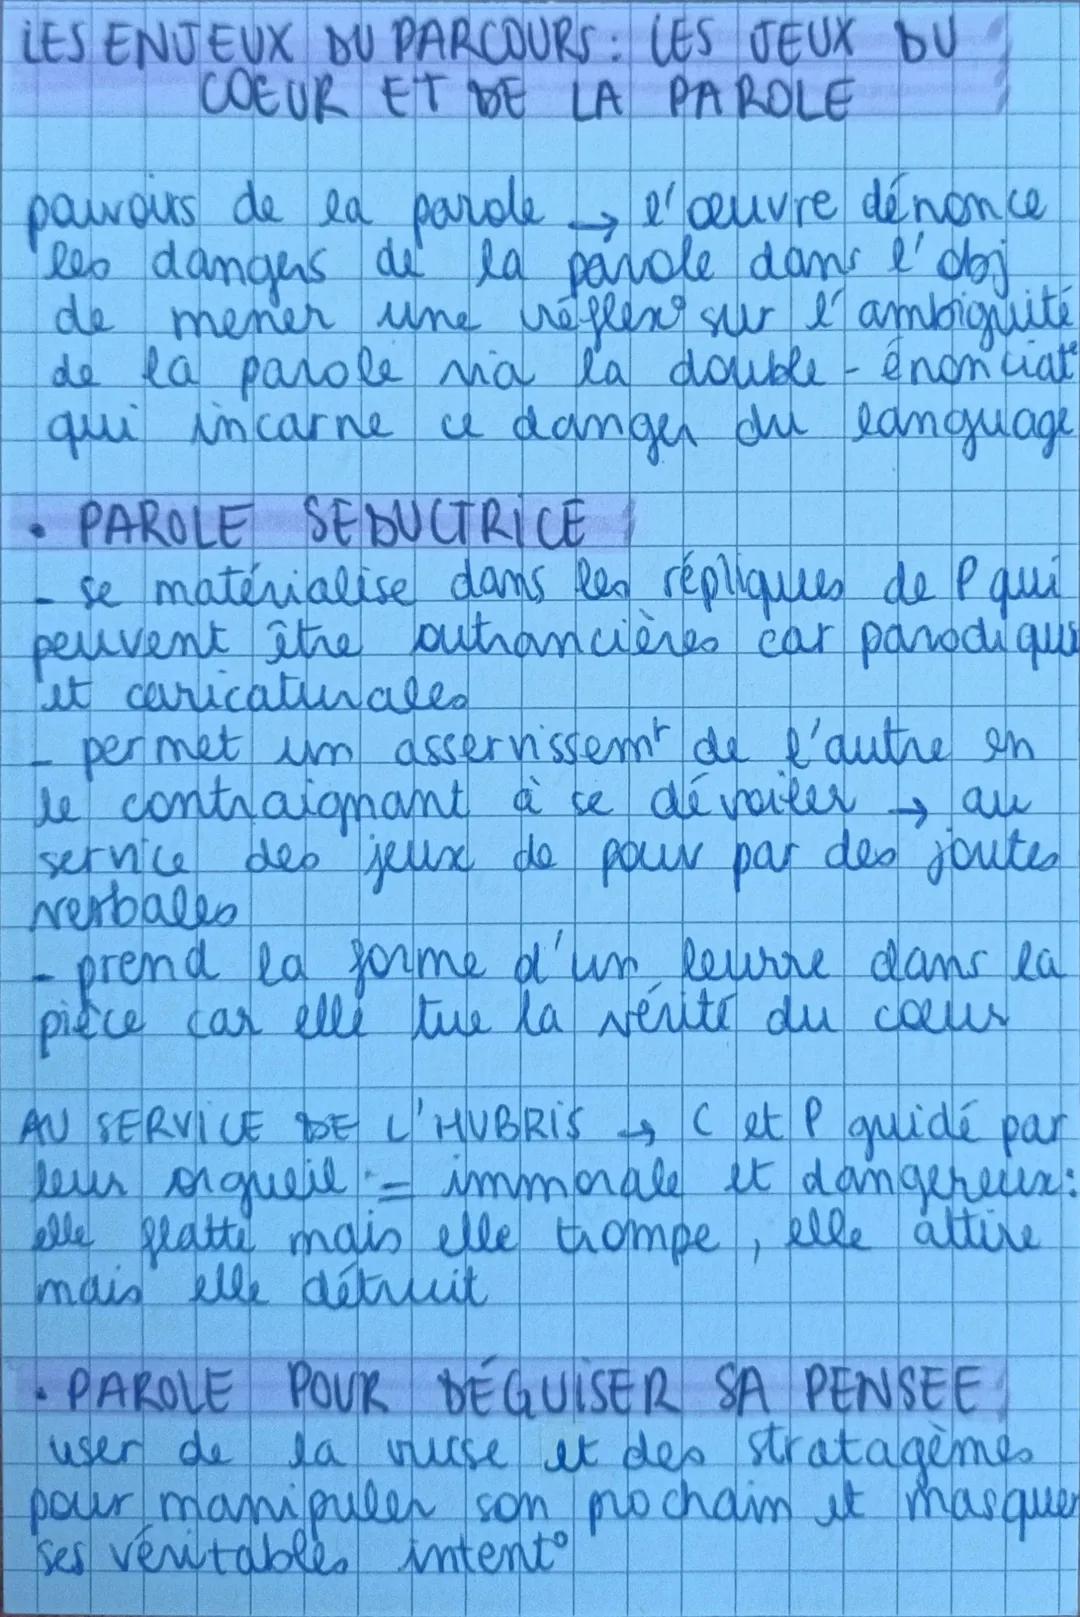 LES ENJEUX DU PARCOURS : LES JEUX DU
COEUR ET DE LA PAROLE
pouvoirs de la parole → l'œuvre dénonce
les dangers de la parole dans l'obj
de mener une réflex° sur l'ambiguité
de la parole via la double-énonciat°
qui incarne ce danger du language
• PAROLE SEDUCTRICE
- se matérialise dans les répliques de P qui
peuvent être outrancières car parodiques
et caricaturales
- permet un asservissemt de l'autre en
le contraignant à se dévoiler → au
service des jeux de pouv par des joutes
verbales
- prend la forme d'un leurre dans la
pièce car elle tue la vérité du cœur
AU SERVICE DE L'HUBRIS → C et P guidé par
leur orgueil = immorale et dangereux :
elle flatte mais elle trompe, elle attire
mais elle détruit
• PAROLE POUR DÉGUISER SA PENSEE
user de la ruse et des stratagèmes
pour manipuler son prochain et masquer
ses véritables intent°